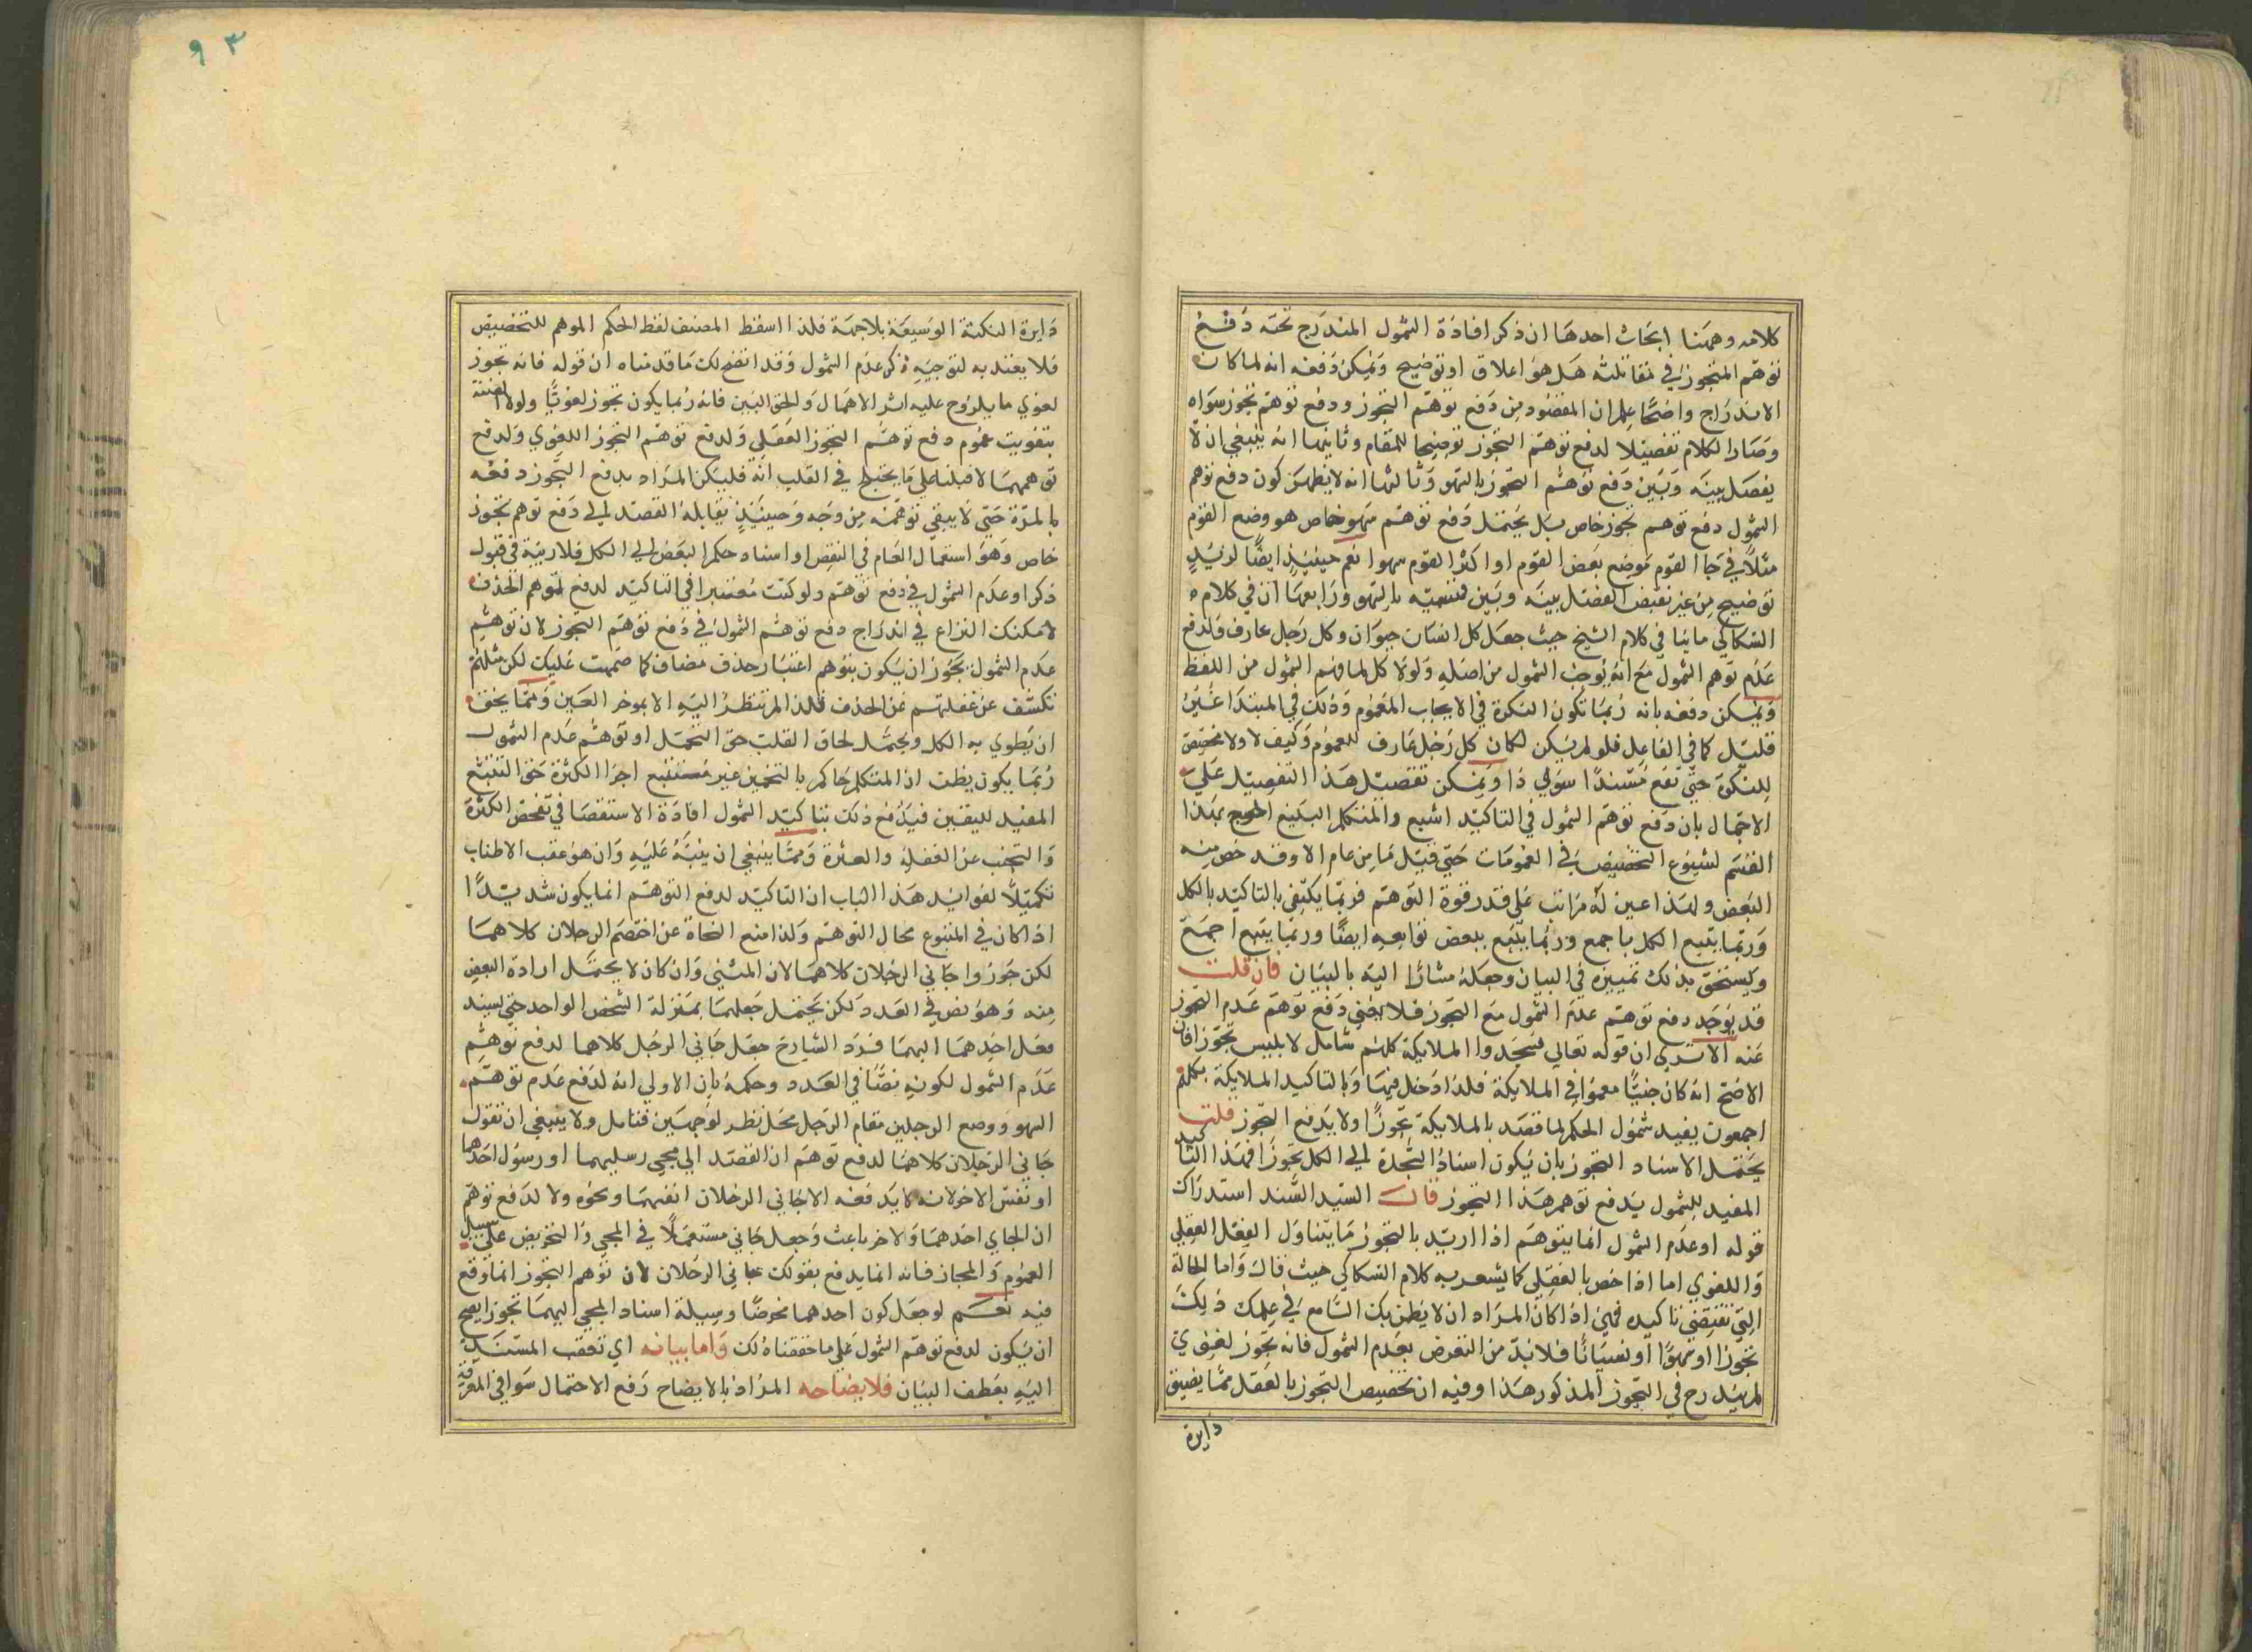 كلامه وههنا ابحاث احدها ان ذكر افادة الشمول المندرج تحته دفع
توهم التجوز في مقابلته هل هو اغلاق او توضيح ويمكن دفعه انه لما كان
الاندراج واضحا علم ان المقصود من دفع توهم التجوز ودفع توهم تجوز سواه
وصار الكلام تفصيلا لدفع توهم التجوز توضيحا للمقام وثانيها انه ينبغي ان لا
يفصل بينه وبين دفع توهم التجوز بالسهو وثالثها انه لا يظهر كون دفع توهم
الشمول دفع توهم تجوز خاص بل يحتمل دفع توهم سهو خاص هو وضع القوم
مثلا في جاء القوم موضع بعض القوم او اكثر القوم سهوا نعم حينئذ ايضا لمزيد
توضيح من غير نقض الفصل بينه وبين قسميه بالسهو ورابعها ان في كلام
السكاكي ماتبا في كلام الشيخ حيث جعل كل انسان حيوان وكل رجل عارف ولدفع
عدم توهم الشمول مع انه يوجب الشمول من اصله ولولا كل لما فهم الشمول من اللفظ
ويمكن دفعه بانه ربما تكون النكرة في الايجاب للعموم وذلك في المبتدا غير
قليل كما في الفاعل فلو لم يكن لكان كل رجل عارف للعموم وكيف لا ولا مخصص
للنكرة حتى تقع مسندا سوى ذا ويمكن تفصيل هذا التفصيل على
الاحتمال بان دفع توهم الشمول في التاكيد اشيع والمتكلم البليغ احوج بهذا
القسم لشيوع التخصيص في العمومات حتى قيل ما من عام الا وقد خص منه
البعض ولهذا عين له مراتب على قدر قوة التوهم فربما يكتفى بالتاكيد بالكل
وربما يتبع الكل باجمع وربما يتبع ببعض توابعه ايضا وربما يتبع اجمع
ويستحق بذلك تمييزه في البيان وجعله مشارا اليه بالبيان فان قلت
قد يوجد دفع توهم عدم الشمول مع التجوز فلا يغني دفع توهم عدم التجوز
عنه الا ترى ان قوله تعالى فسجدوا الملايكة كلهم شامل لابليس تجوزا فان
الاصح انه كان جنيا مغمورا في الملايكة فلذا دخل فيها وبالتاكيد الملايكة بكلهم
اجمعون يفيد شمول الحكم لما قصد بالملايكة تجوزا ولا يدفع التجوز قلت
يحتمل الاسناد التجوز بان يكون اسناد السجدة الى الكل تجوزا فهذا التاكيد
المفيد للشمول يدفع توهم هذا التجوز قال السيد السند استدراك
قوله او عدم الشمول انما يتوهم اذا اريد بالتجوز ما يتناول العقل العقلي
واللغوي اما اذا خص بالعقلي كما يشعر به كلام السكاكي حيث قال واما الحالة
التي تقتضي تاكيده فهي اذا كان المراد ان لا يظن بك السامع في علمك ذلك
تجوزا او سهوا او نسيانا فلا بد من التعرض بعدم الشمول فانه تجوز لغوي
لم يندرج في التجوز المذكور هذا وفيه ان تخصيص التجوز بالعقل مما يضيق
دايرة
٩٣
دايرة النكتة الوسيعة بلا جهة فلذا اسقط المصنف لفظ الحكم الموهم للتخصيص
فلا يعتد به لتوجيه ذكر عدم الشمول وقد اتضح لك ما قدمناه ان قوله فانه تجوز
لغوي ما يلوح عليه اثر الاهمال والحق البين فانه ربما يكون تجوز لغويا ولولا
بتفويت عموم دفع توهم التجوز العقلي ولدفع توهم التجوز اللغوي ولدفع
توهمهما لا قبلنا على ما يختلج في القلب انه فليكن المراد بدفع التجوز دفعه
بالمرة حتى لا يبقى توهمه من وجه وحينئذ تقابله القصد الى دفع توهم تجوز
خاص وهو استعمال العام في البعض او اسناد حكم البعض الى الكل فلا ريبة في قبول
ذكر او عدم الشمول في دفع توهم ولو كنت معتبرا في التاكيد لدفع لتوهم الحذف
لا مكنك النزاع في اندراج دفع توهم الشمول في دفع توهم التجوز لان توهم
عدم الشمول يجوز ان يكون بتوهم اعتبار حذف مضاف كما صمت عليك لكن مثلنه
تكشف عن غفلتهم عن الحذف فلذا لم تنظر اليه الا بموخر العين ومما يخف
ان يطوي به الكل ويحتمل لحاق القلب حق التحمل او توهم عدم الشمول
ربما يكون بظن اذ المتكلم حاكم بالتخمين غير مستتبع اجزا الكثرة حق التتبع
المفيد لليقين فيدفع ذلك بتاكيد الشمول افادة الاستقصا في تفحص الكثرة
والتجنب عن الغفلة والعثرة ومما ينبغي ان ينبه عليه وان هو عقب الاطناب
تكميلا لفوائد هذا الباب ان التاكيد لدفع التوهم انما يكون شديدا
اذا كان في المتبوع محال التوهم ولذا منع النحاة عن اختصم الرجلان كلاهما
لكن جوزوا جاني الرجلان كلاهما لان المثنى وان كان لا يحتمل ارادة البعض
منه وهو نص في العدد لكن يحتمل جعلهما بمنزلة الشخص الواحد حتى يسند
فعل احدهما اليهما فرد الشارح جعل جاني الرجل كلاهما لدفع توهم
عدم الشمول لكونه نصا في العدد وحكمه بان الاولى انه لدفع عدم توهم
السهو ووضع الرجلين مقام الرجل محل نظر لوجهين فتامل ولا ينبغي ان تقول
جاني الرجلان كلاهما لدفع توهم ان القصد الى مجي رسليهما او رسول احدهما
او نفس الاخر لانه لا يدفعه الا جاني الرجلان انفسهما ونحوه ولا لدفع توهم
ان الجاي احدهما والاخر باعث وجعل جاني مستعملا في المجي والتحريض على سبيل
العموم والمجاز فانه انما يدفع بقولك جاني الرجلان لان توهم التجوز انما وقع
فيه نعم لو جعل كون احدهما محرضا وسيلة اسناد المجي اليهما تجوزا يصح
ان يكون لدفع توهم الشمول على ما حققناه لك واما بيانه اي تعقب المسند
اليه بعطف البيان فلايضاحه المراد بالايضاح رفع الاحتمال سوا في المعرفة